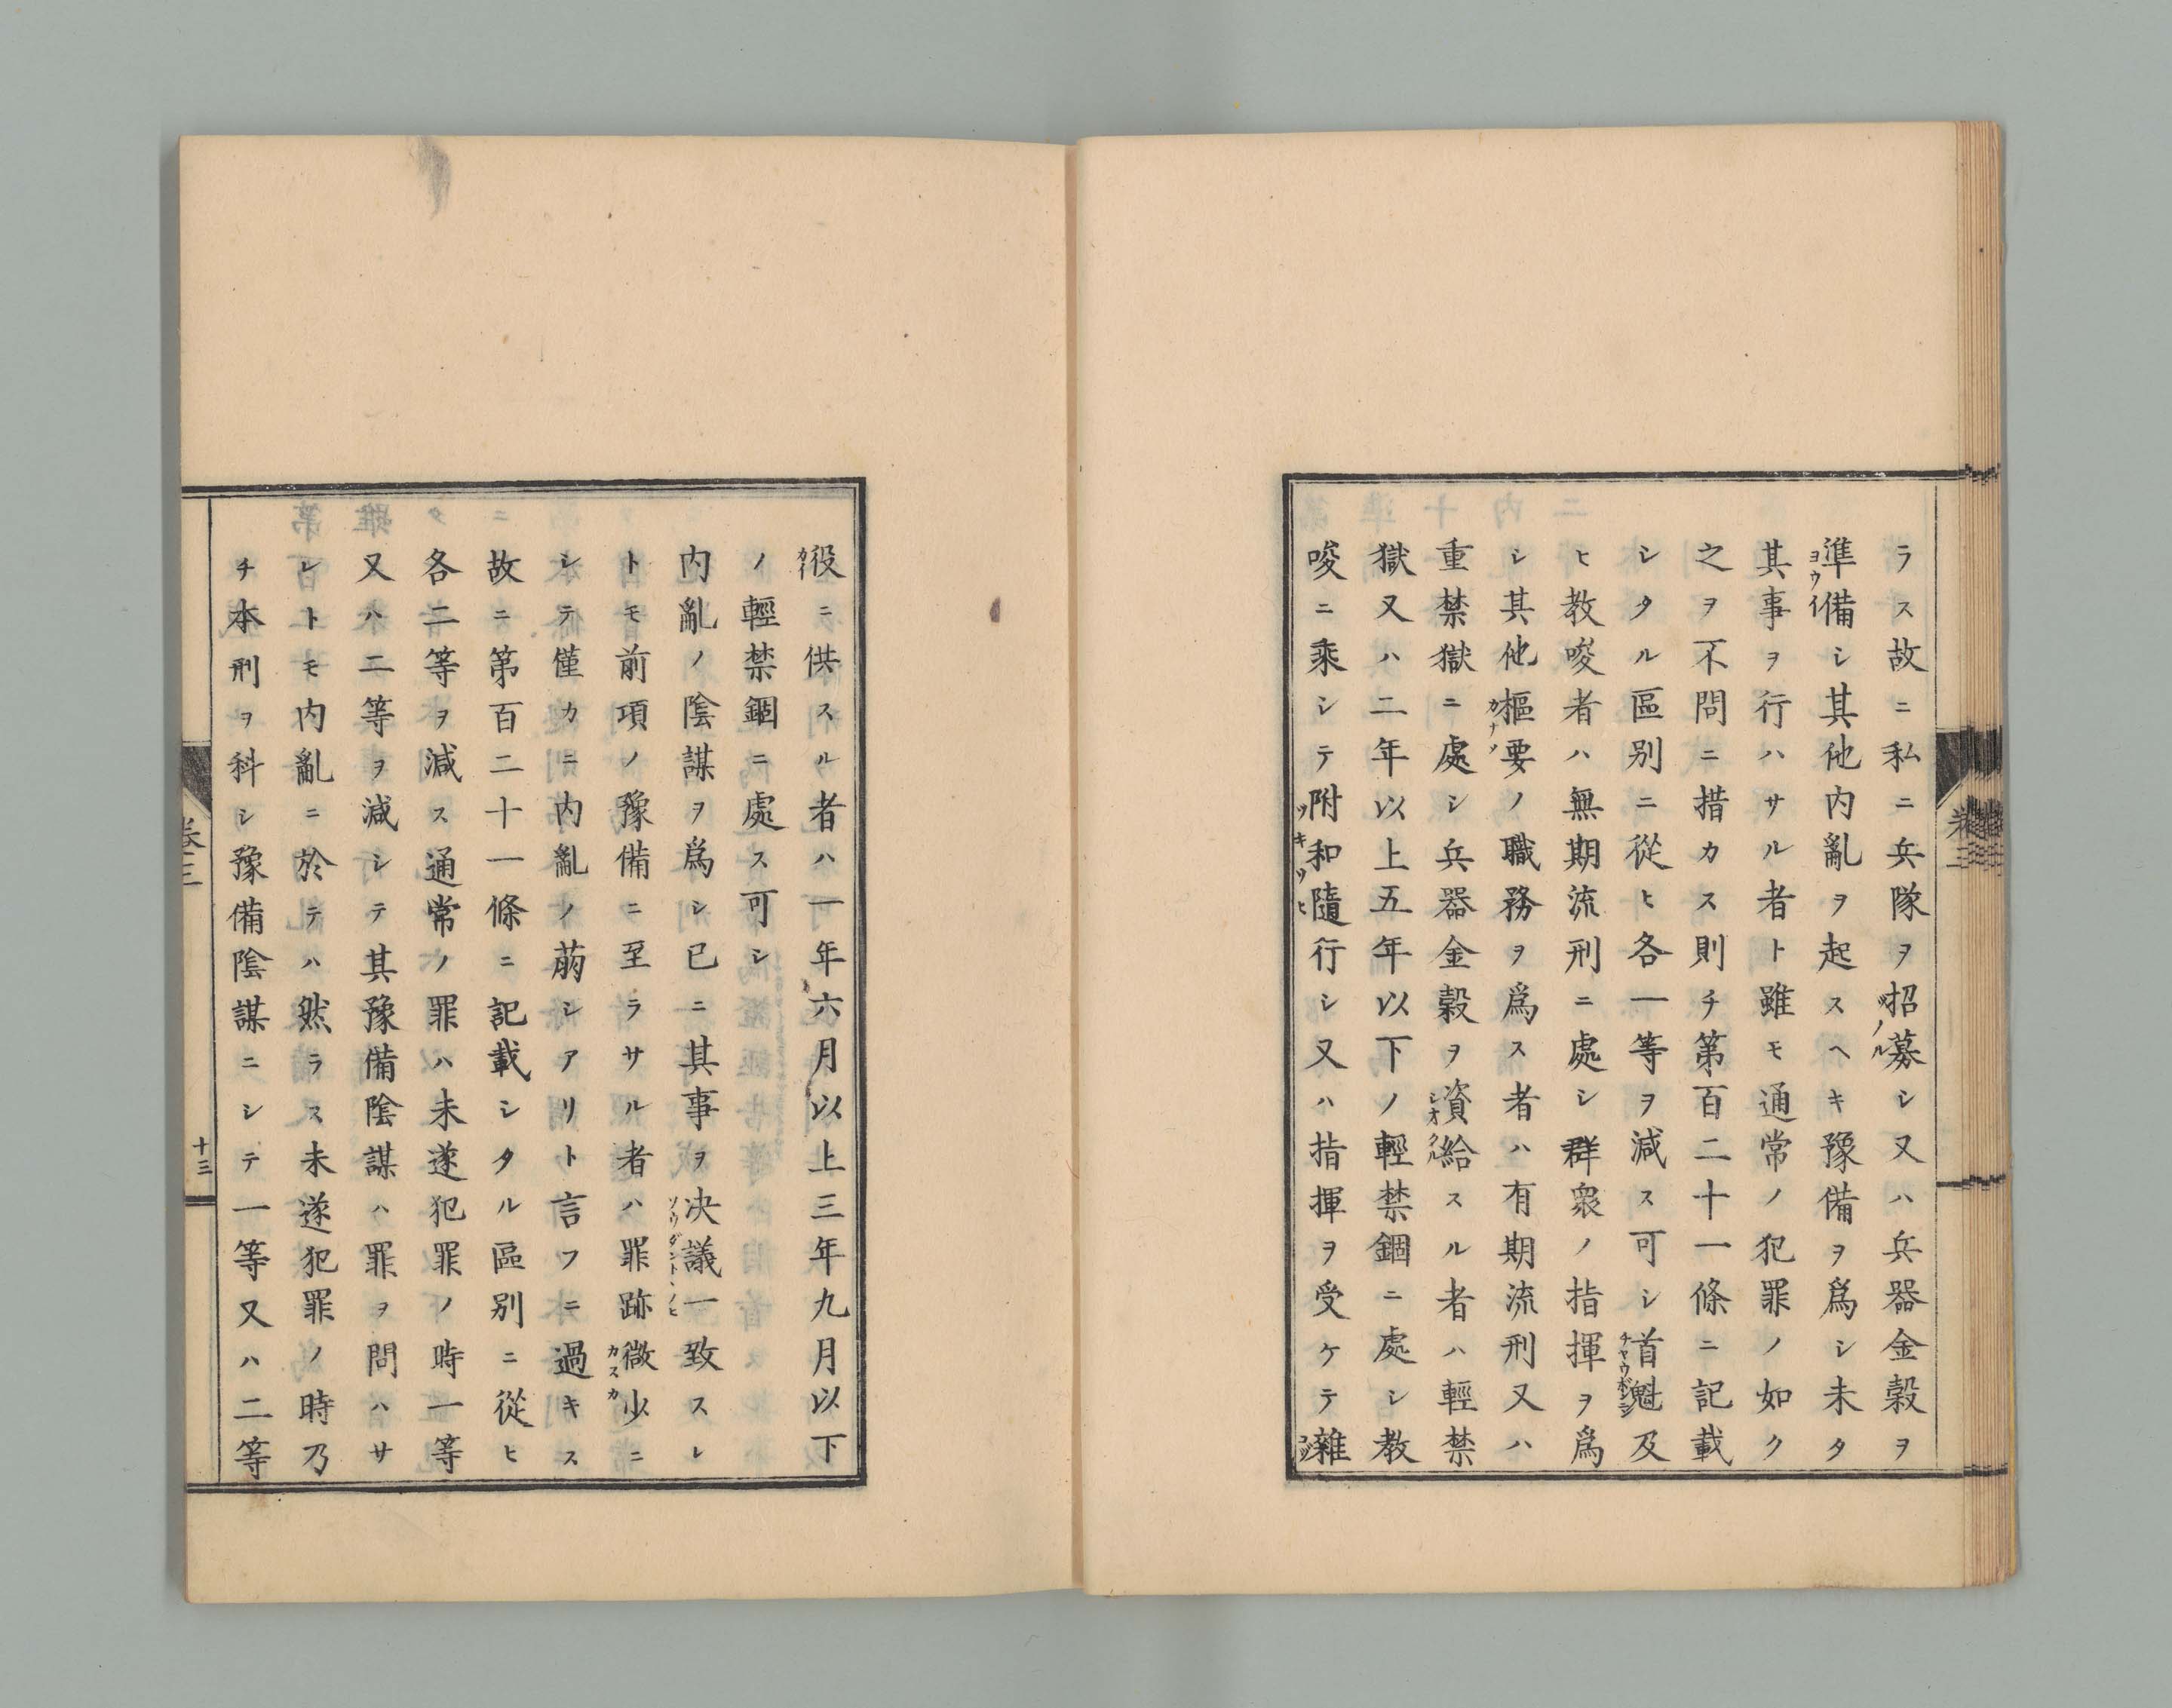 ラス故ニ私ニ兵隊ヲ招募シ又ハ兵器金穀ヲ
準備シ其他内亂ヲ起スヘキ豫備ヲ爲シ未タ
其事ヲ行ハサル者ト雖モ通常ノ犯罪ノ如ク
之ヲ不問ニ措カス則チ第百二十一條ニ記載
シタル區別ニ從ヒ各一等ヲ減ス可シ首魁及
ヒ教唆者ハ無期流刑ニ處シ群衆ノ指揮ヲ爲
シ其他樞要ノ職務ヲ爲ス者ハ有期流刑又ハ
重禁獄ニ處シ兵器金穀ヲ資給スル者ハ輕禁
獄又ハ二年以上五年以下ノ輕禁錮ニ處シ教
唆ニ乘シテ附和隨行シ又ハ指揮ヲ受ケテ雜
役ニ供スル者ハ一年六月以上三年九月以下
ノ輕禁錮ニ處ス可シ
内亂ノ陰謀ヲ爲シ已ニ其事ヲ決議一致スレ
トモ前項ノ豫備ニ至ラサル者ハ罪跡微少ニ
シテ僅カニ内亂ノ萠シアリト言フニ過キス
故ニ第百二十一條ニ記載シタル區別ニ從ヒ
各二等ヲ減ス通常ノ罪ハ未遂犯罪ノ時一等
又ハ二等ヲ減シテ其豫備陰謀ハ罪ヲ問ハサ
レトモ内亂ニ於テハ然ラス未遂犯罪ノ時乃
チ本刑ヲ科シ豫備陰謀ニシテ一等又ハ二等
卷三
十三